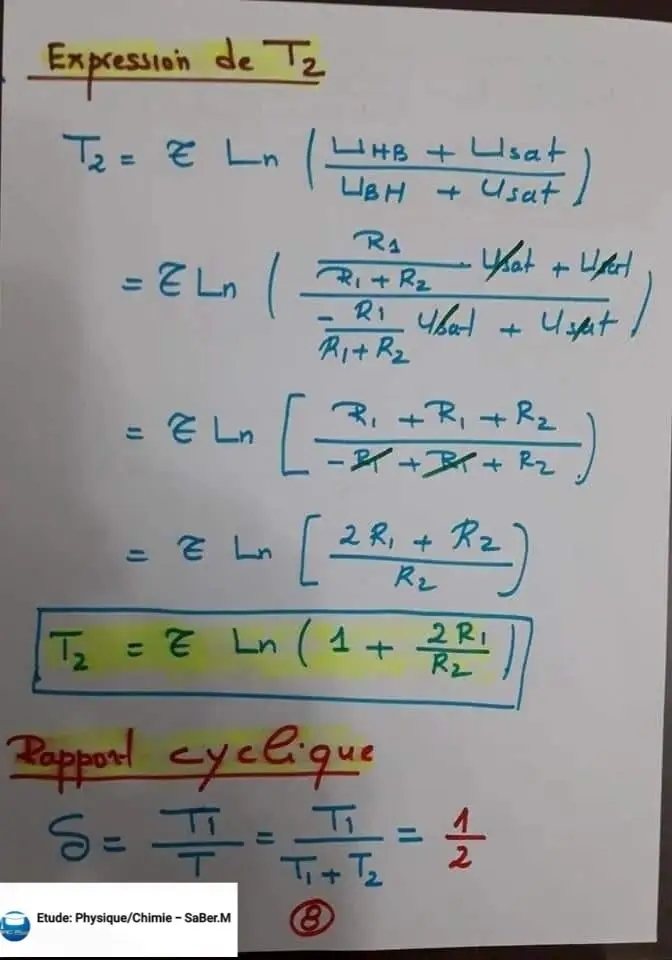 Expression de T₂
T₂ = τ Ln ( (UHB + Usat) / (UBH + Usat) )
= τ Ln ( (R₁ / (R₁ + R₂) · Usat + Usat) / (- R₁ / (R₁ + R₂) Usat + Usat) )
= τ Ln [ (R₁ + R₁ + R₂) / (-R₁ + R₁ + R₂) )
= τ Ln [ (2R₁ + R₂) / R₂ )
T₂ = τ Ln ( 1 + 2R₁ / R₂ )
Rapport cyclique
δ = T₁ / T = T₁ / (T₁ + T₂) = 1 / 2
8
Etude: Physique/Chimie – SaBer.M